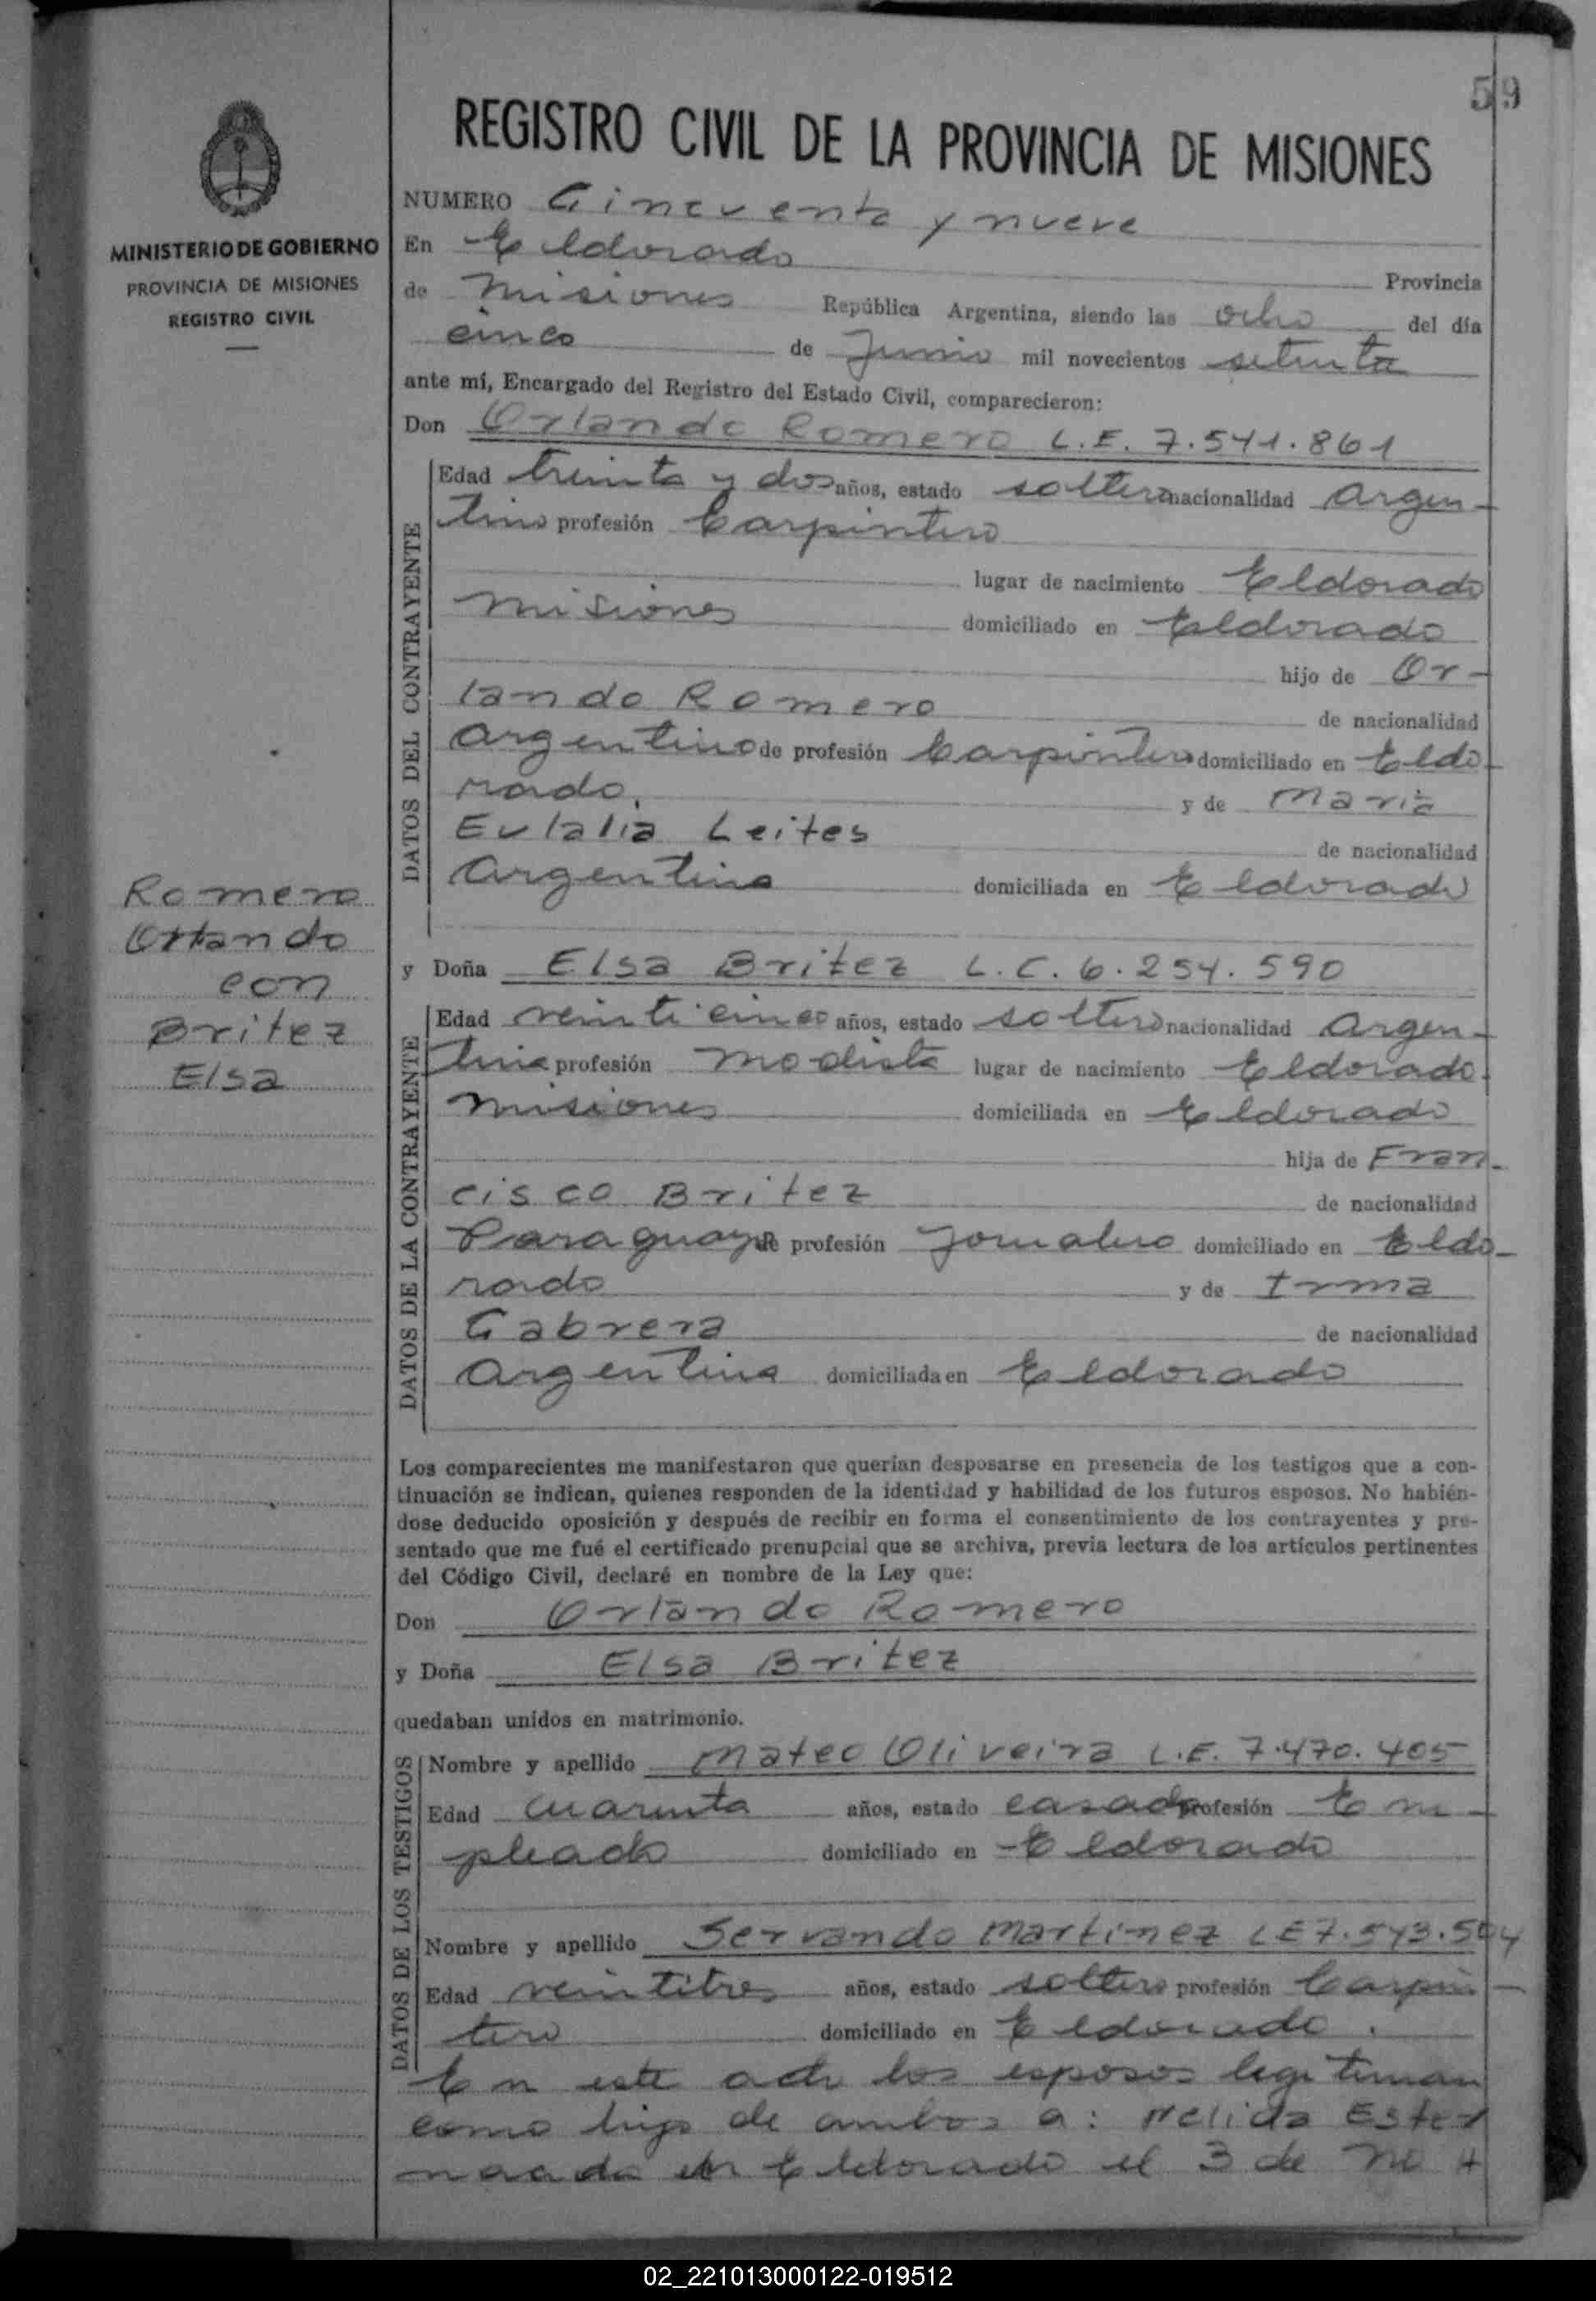 59
REGISTRO CIVIL DE LA PROVINCIA DE MISIONES
MINISTERIO DE GOBIERNO
PROVINCIA DE MISIONES
REGISTRO CIVIL
NUMERO Cincuenta y nueve
En Eldorado Provincia
de Misiones República Argentina, siendo las ocho del día
cinco de Junio mil novecientos setenta
ante mí, Encargado del Registro del Estado Civil, comparecieron:
Don Orlando Romero L.E. 7.541.861
DATOS DEL CONTRAYENTE
Edad treinta y dos años, estado soltero nacionalidad argen-
tino profesión Carpintero
lugar de nacimiento Eldorado
Misiones domiciliado en Eldorado
hijo de Or-
lando Romero de nacionalidad
argentino de profesión Carpintero domiciliado en Eldo-
rado, y de Maria
Eulalia Leites de nacionalidad
Argentina domiciliada en Eldorado
Romero
Orlando
con
Britez
Elsa
y Doña Elsa Britez L.C. 6.254.590
DATOS DE LA CONTRAYENTE
Edad veinticinco años, estado soltero nacionalidad argen-
tina profesión Modista lugar de nacimiento Eldorado
Misiones domiciliada en Eldorado
hija de Fran-
cisco Britez de nacionalidad
Paraguayo de profesión Jornalero domiciliado en Eldo-
rado y de Irma
Cabrera de nacionalidad
argentina domiciliada en Eldorado
Los comparecientes me manifestaron que querían desposarse en presencia de los testigos que a con-
tinuación se indican, quienes responden de la identidad y habilidad de los futuros esposos. No habién-
dose deducido oposición y después de recibir en forma el consentimiento de los contrayentes y pre-
sentado que me fué el certificado prenupcial que se archiva, previa lectura de los artículos pertinentes
del Código Civil, declaré en nombre de la Ley que:
Don Orlando Romero
y Doña Elsa Britez
quedaban unidos en matrimonio.
DATOS DE LOS TESTIGOS
Nombre y apellido Mateo Oliveira L.E. 7.470.405
Edad cuarenta años, estado casado profesión Em-
pleado domiciliado en Eldorado
Nombre y apellido Servando Martinez LE 7.543.504
Edad veintitres años, estado soltero profesión Carpin-
tero domiciliado en Eldorado.
En este acto los esposos legitiman
como hijo de ambos a: Nelida Ester
nacida en Eldorado el 3 de
02_221013000122-019512